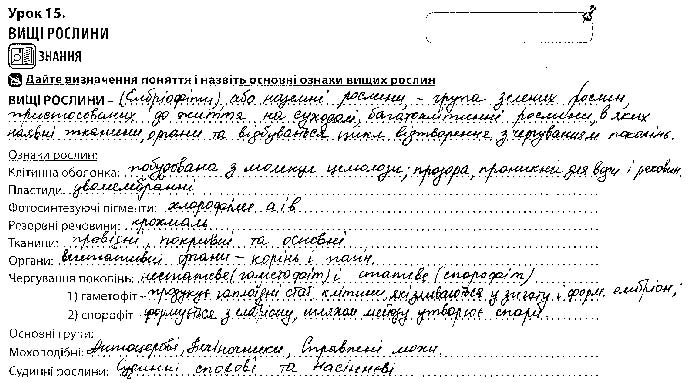 Урок 15.
3
ВИЩІ РОСЛИНИ
ЗНАННЯ
Дайте визначення поняття і назвіть основні ознаки вищих рослин
ВИЩІ РОСЛИНИ – (Ембріофіти) або наземні рослини, – група зелених рослин,
пристосованих до життя на суходолі, багатоклітинні рослини, в яких
наявні тканини, органи та відбувається цикл відтворення з чергуванням поколінь.
Ознаки рослин:
Клітинна оболонка: побудована з молекул целюлози; прозора, проникни для води і речовин.
Пластиди: двомембранні
Фотосинтезуючі пігменти: хлорофіли а і в
Резервні речовини: крохмаль
Тканини: провідні, покривні та основні
Органи: вегетативні органи – корінь і пагін.
Чергування поколінь: нестатеве (гаметофіт) і статеве (спорофіт)
1) гаметофіт – продукує гаплоїдні стат. клітини, які зливаються у зиготу і форм. ембріон;
2) спорофіт – формується з ембріону, шляхом мейозу утворює спори.
Основні групи:
Мохоподібні: Антоцеротві, Печіночники, Справжні мохи
Судинні рослини: Судинні спорові та Насіннєві